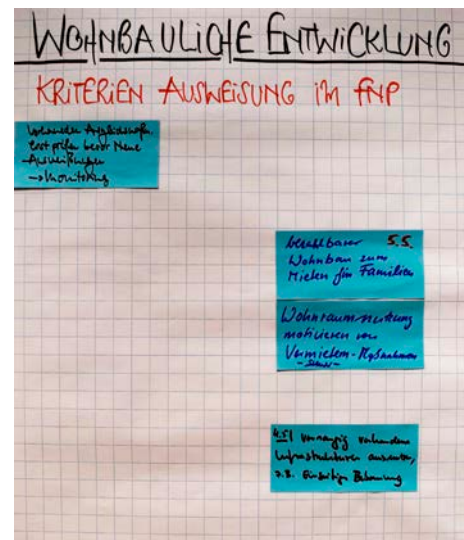 WOHNBAULICHE ENTWICKLUNG
KRITERIEN AUSWEISUNG IM FNP
erst prüfen bevor Neue
Ausweisungen
→ Monitoring
bezahlbarer 5.5.
Wohnbau zum
Mieten für Familien
Wohnraumnutzung
motivieren von
Vermietern-Maßnahmen
4.5! vorrangig vorhandene
Infrastrukturen
z.B. Einseitige Bebauung